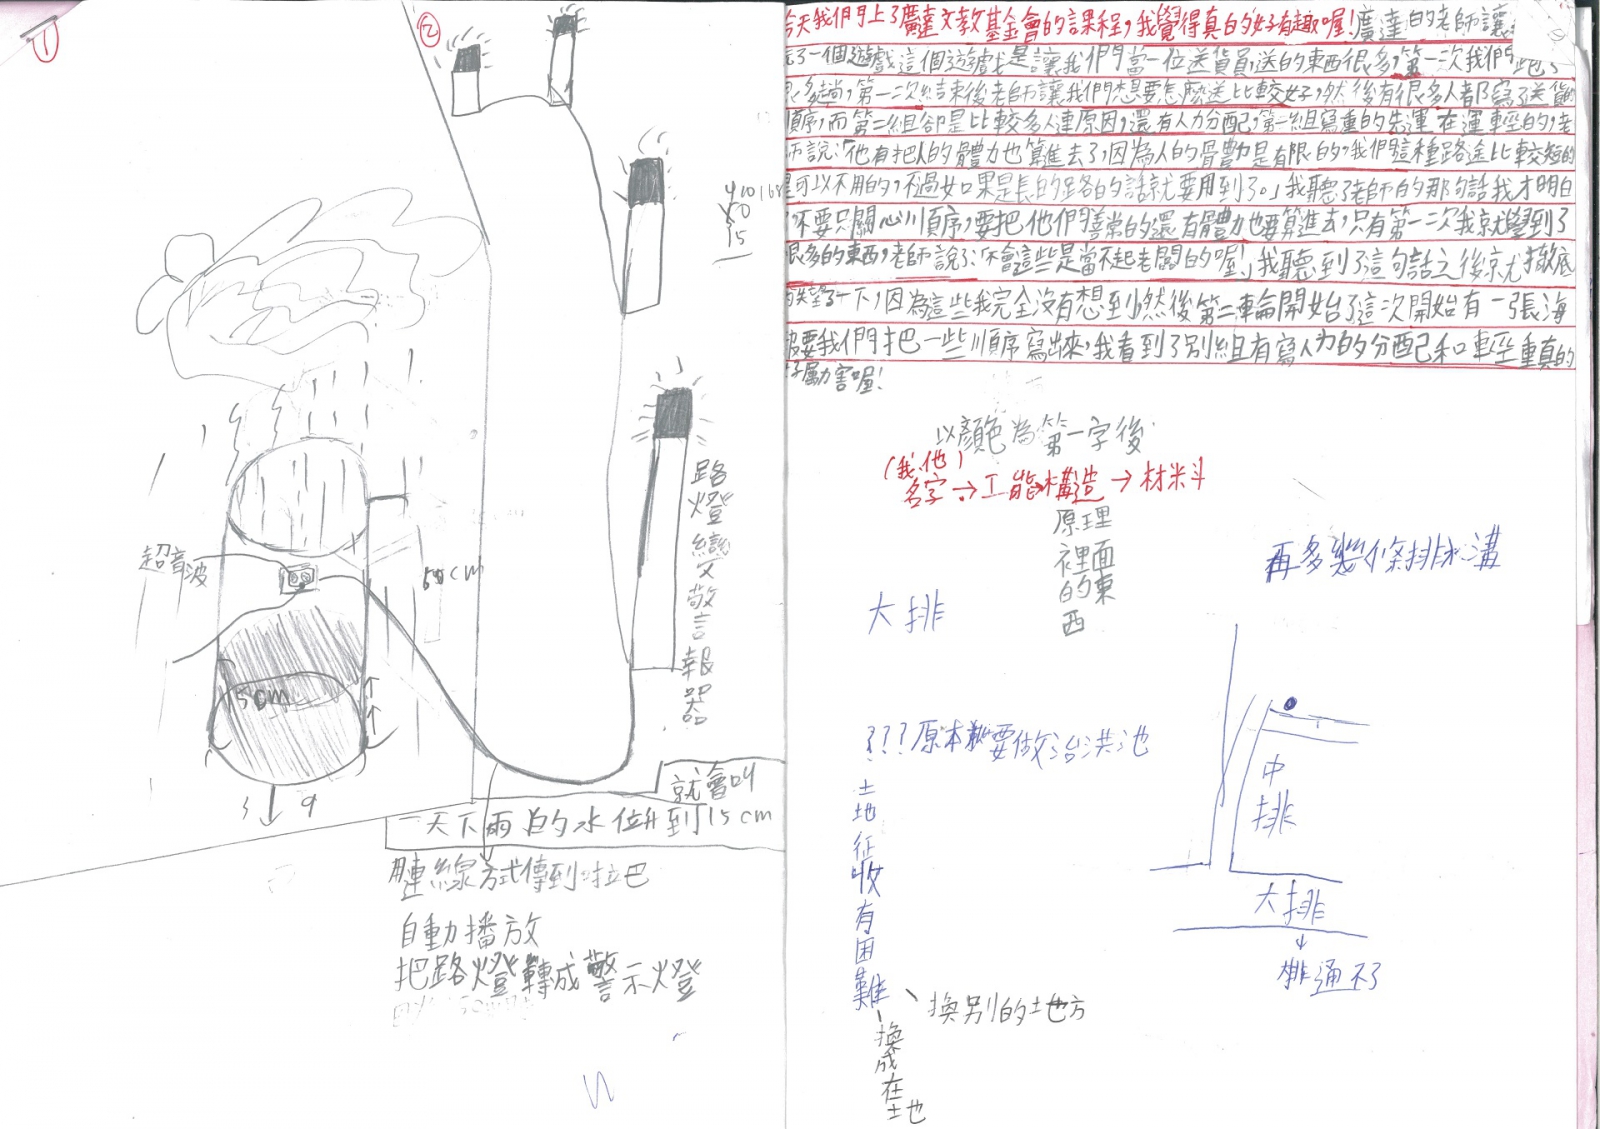 ①
②
超音波
50cm
15cm
路燈變警報器
就會叫
一天下雨的水位升到15cm
連線方式傳到喇叭
自動播放
把路燈轉成警示燈
今天我們上了廣達文教基金會的課程,我覺得真的好有趣喔!廣達的老師讓
玩了一個遊戲這個遊戲是讓我們當一位送貨員,送的東西很多,第一次我們跑了
很多趟,第一次結束後老師讓我們想要怎麼送比較好,然後有很多人都寫了送貨的
順序,而第二組卻是比較多人連原因,還有人力分配,第一組寫重的先運在運輕的,老
師說:「他有把人的體力也算進去了,因為人的體力是有限的,我們這種路途比較短的
是可以不用的,不過如果是長的路的話就要用到了。」我聽了老師的那句話我才明白
不要只關心順序,要把他們善常的還有體力也要算進去,只有第一次我就學到了
很多的東西,老師說了:「不會這些是當不起老闆的喔」我聽到了這句話之後就徹底
失望了一下,因為這些我完全沒有想到然後第二輪開始了這次開始有一張海
要我們把一些順序寫出來,我看到了別組有寫人力的分配和輕重真的
好厲害喔!
以顏色為第一字後
(我、他)
名字→工能→構造→材料
原理
裡面的東西
再多幾條排水溝
大排
???原本要做治洪池
土地征收有困難
換別的地方
換成在土地
中排
大排
↓
排通不了